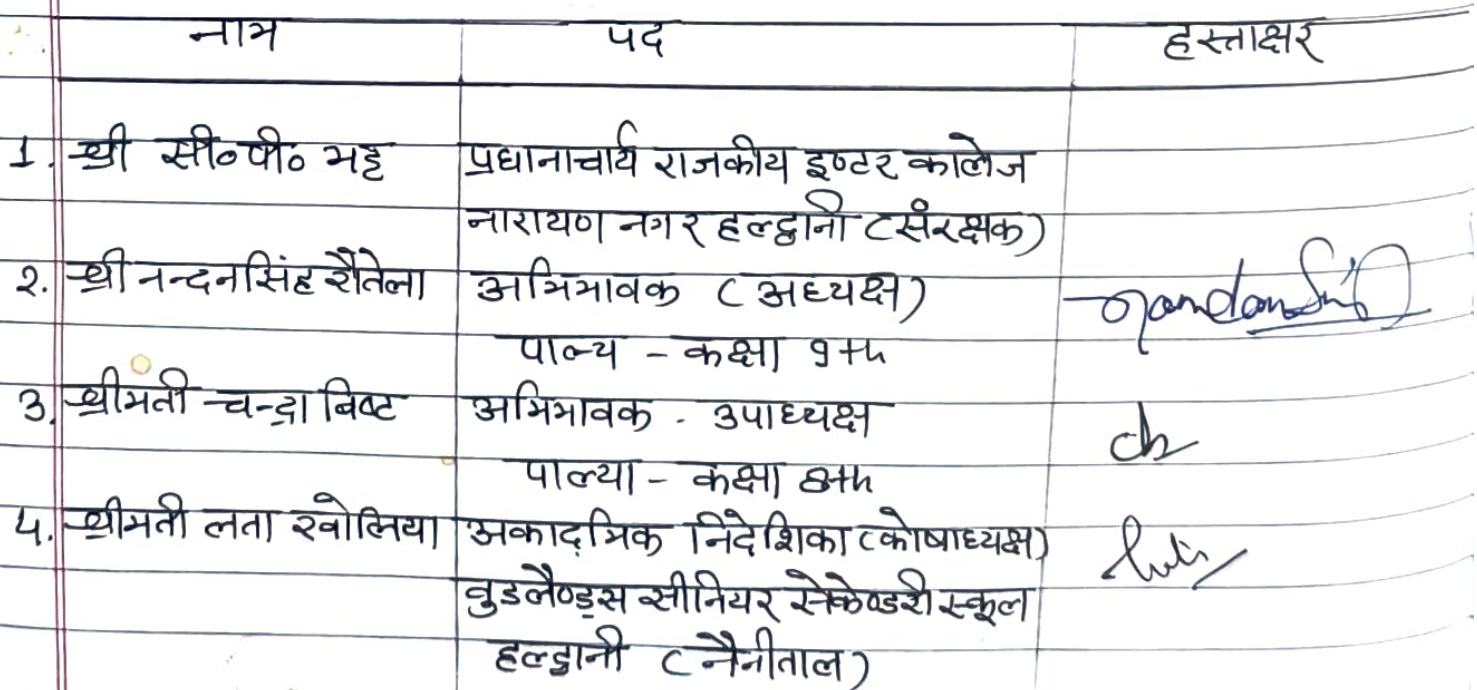 नाम पद हस्ताक्षर
1. श्री सी०पी० भट्ट प्रधानाचार्य राजकीय इण्टर कालेज
नारायण नगर हल्द्वानी (संरक्षक)
2. श्री नन्दनसिंह रौतेला अभिभावक (अध्यक्ष)
पाल्य - कक्षा 9th
3. श्रीमती चन्द्रा बिष्ट अभिभावक - उपाध्यक्ष
पाल्या - कक्षा 8th
4. श्रीमती लता खोलिया अकादमिक निदेशिका (कोषाध्यक्ष)
वुडलैण्ड्स सीनियर सेकेण्डरी स्कूल
हल्द्वानी (नैनीताल)